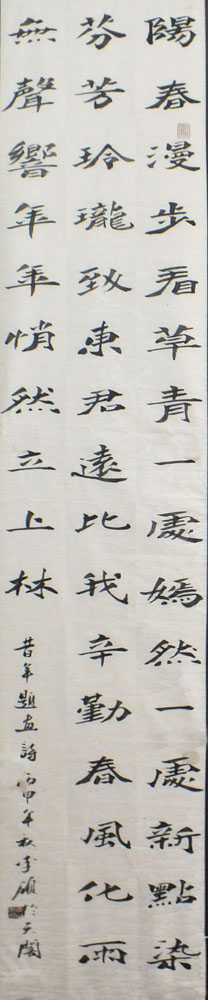 陽春漫步看草青一處嫣然一處新點染
芬芳玲瓏致東君遠比我辛勤春風化雨
無聲響年年悄然立上林
昔年題畫詩丙申年秋李碩於天閣